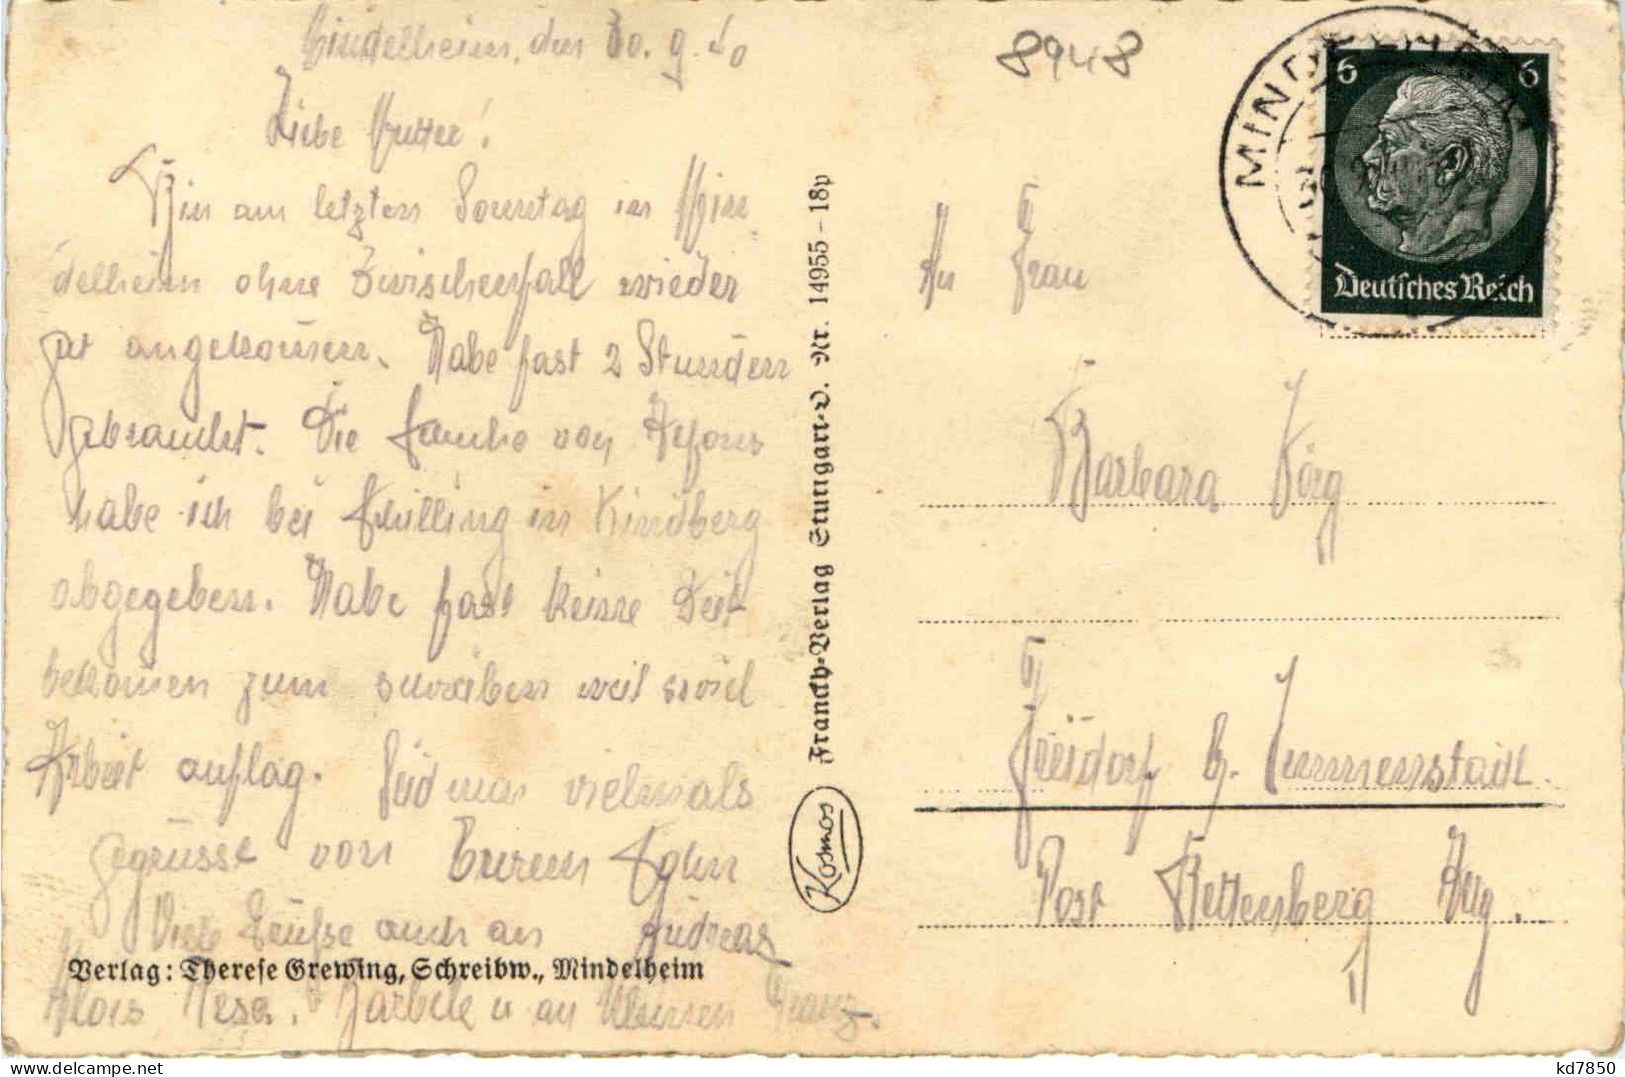 Mindelheim, den 30. 9. 40
Liebe Mutter!
Bin am letzten Sonntag in Min
delheim ohne Zwischenfall wieder
gut angekommen. Habe fast 2 Stunden
gebraucht. Die von Alfons
habe ich bei in
abgegeben. Habe fast keine Zeit
bekomen zum schreiben weil soviel
Arbeit auflag. Seid nun vielmals
gegrüsst von Eurem Sohn
Viele Grüsse auch an Andreas
Alois Resa. u an kleinen Franz.
Verlag: Therese Grewing, Schreibw., Mindelheim
Franckh-Verlag Stuttgart-O. Nr. 14955 – 18p
Kosmos
8948
MINDELHEIM
6 6
Deutsches Reich
An Frau
Barbara Jörg
Freidorf b. Immenstadt
Post Rettenberg Allg.
kd7850